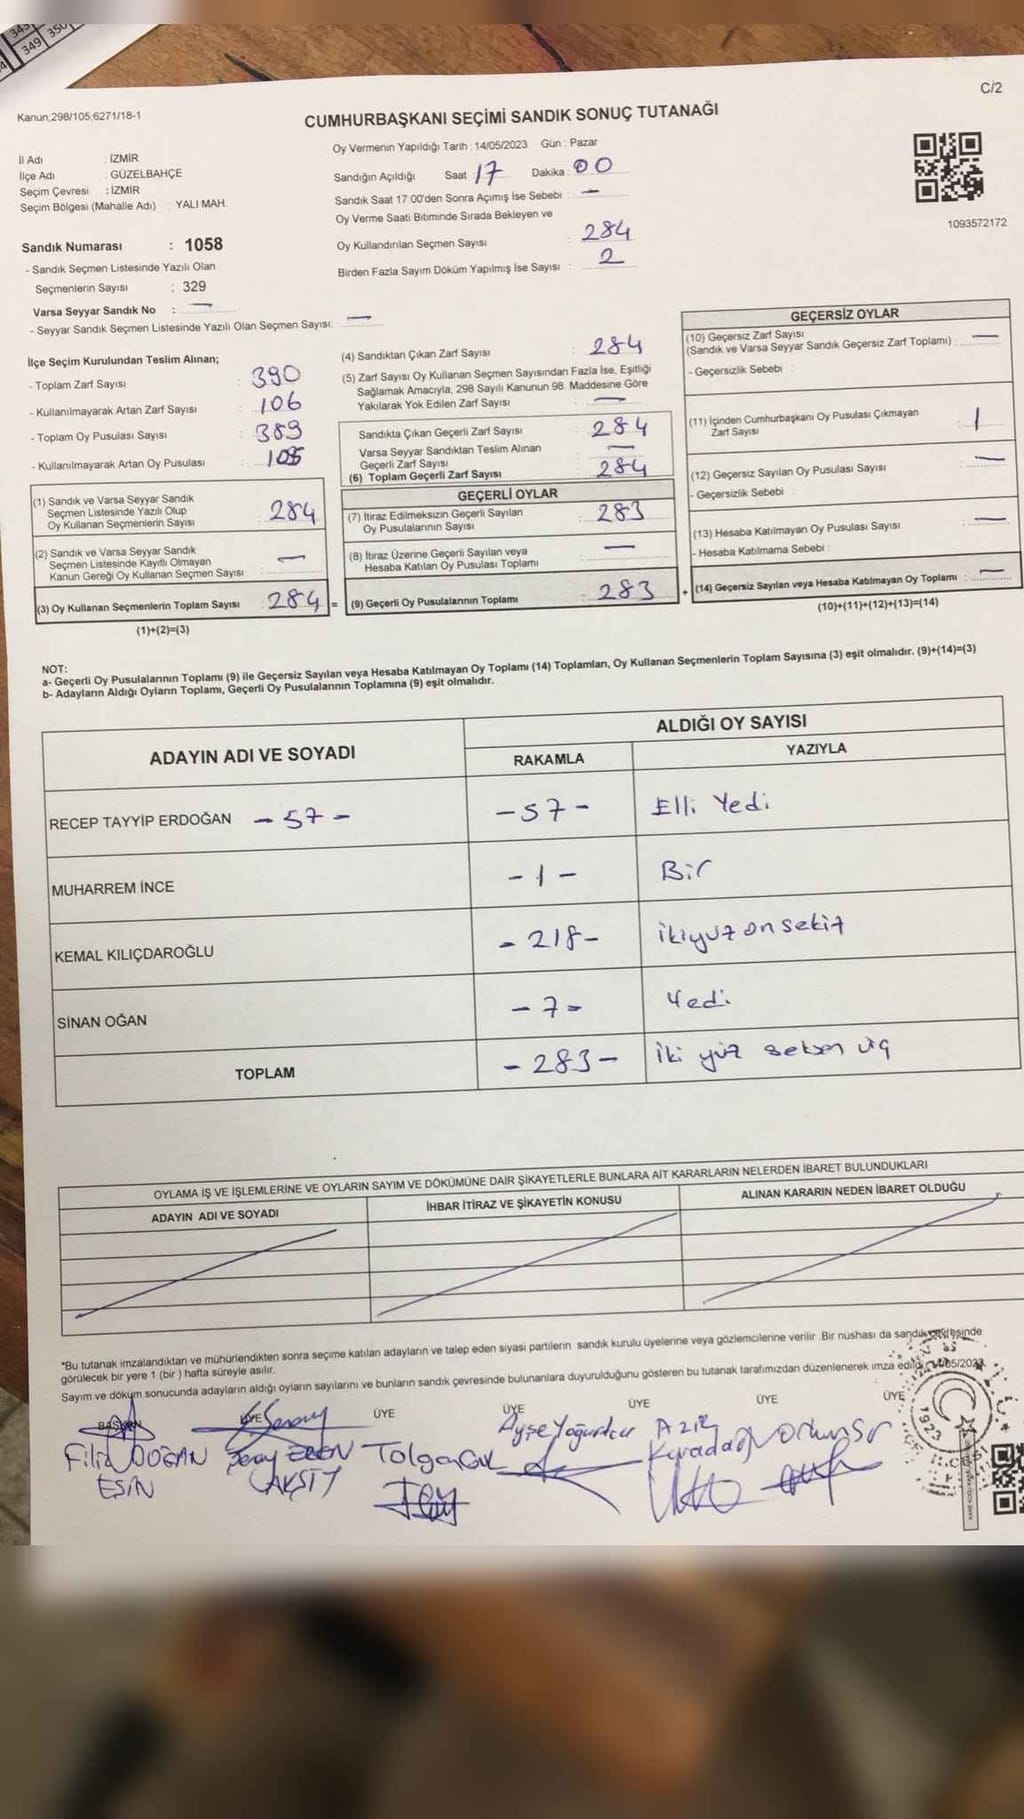 349 350
C/2
Kanun;298/105,6271/18-1
CUMHURBAŞKANI SEÇİMİ SANDIK SONUÇ TUTANAĞI
İl Adı : İZMİR
İlçe Adı : GÜZELBAHÇE
Seçim Çevresi : İZMİR
Seçim Bölgesi (Mahalle Adı) YALI MAH.
Oy Vermenin Yapıldığı Tarih : 14/05/2023 Gün : Pazar
Sandığın Açıldığı Saat 17 Dakika : 00
Sandık Saat 17:00'den Sonra Açımış İse Sebebi : —
Oy Verme Saati Bitiminde Sırada Bekleyen ve
Oy Kullandırılan Seçmen Sayısı : 284
Birden Fazla Sayım Döküm Yapılmış İse Sayısı : 2
1093572172
Sandık Numarası : 1058
- Sandık Seçmen Listesinde Yazılı Olan
Seçmenlerin Sayısı : 329
Varsa Seyyar Sandık No : —
- Seyyar Sandık Seçmen Listesinde Yazılı Olan Seçmen Sayısı: —
İlçe Seçim Kurulundan Teslim Alınan;
- Toplam Zarf Sayısı : 390
- Kullanılmayarak Artan Zarf Sayısı : 106
- Toplam Oy Pusulası Sayısı : 389
- Kullanılmayarak Artan Oy Pusulası :
(1) Sandık ve Varsa Seyyar Sandık
Seçmen Listesinde Yazılı Olup
Oy Kullanan Seçmenlerin Sayısı : 284
(2) Sandık ve Varsa Seyyar Sandık
Seçmen Listesinde Kayıtlı Olmayan
Kanun Gereği Oy Kullanan Seçmen Sayısı : —
(3) Oy Kullanan Seçmenlerin Toplam Sayısı : 284 =
(1)+(2)=(3)
(4) Sandıktan Çıkan Zarf Sayısı : 284
(5) Zarf Sayısı Oy Kullanan Seçmen Sayısından Fazla İse, Eşitliği
Sağlamak Amacıyla, 298 Sayılı Kanunun 98. Maddesine Göre
Yakılarak Yok Edilen Zarf Sayısı : —
Sandıkta Çıkan Geçerli Zarf Sayısı : 284
Varsa Seyyar Sandıktan Teslim Alınan
Geçerli Zarf Sayısı : —
(6) Toplam Geçerli Zarf Sayısı : 284
GEÇERLİ OYLAR
(7) İtiraz Edilmeksizin Geçerli Sayılan
Oy Pusulalarının Sayısı : 283
(8) İtiraz Üzerine Geçerli Sayılan veya
Hesaba Katılan Oy Pusulası Toplamı : —
(9) Geçerli Oy Pusulalarının Toplamı : 283 +
GEÇERSİZ OYLAR
(10) Geçersiz Zarf Sayısı
(Sandık ve Varsa Seyyar Sandık Geçersiz Zarf Toplamı) : —
- Geçersizlik Sebebi :
(11) İçinden Cumhurbaşkanı Oy Pusulası Çıkmayan
Zarf Sayısı : 1
(12) Geçersiz Sayılan Oy Pusulası Sayısı : —
- Geçersizlik Sebebi :
(13) Hesaba Katılmayan Oy Pusulası Sayısı : —
- Hesaba Katılmama Sebebi :
(14) Geçersiz Sayılan veya Hesaba Katılmayan Oy Toplamı : —
(10)+(11)+(12)+(13)=(14)
NOT:
a- Geçerli Oy Pusulalarının Toplamı (9) ile Geçersiz Sayılan veya Hesaba Katılmayan Oy Toplamı (14) Toplamları, Oy Kullanan Seçmenlerin Toplam Sayısına (3) eşit olmalıdır. (9)+(14)=(3)
b- Adayların Aldığı Oyların Toplamı, Geçerli Oy Pusulalarının Toplamına (9) eşit olmalıdır.
ADAYIN ADI VE SOYADI
ALDIĞI OY SAYISI
RAKAMLA YAZIYLA
RECEP TAYYİP ERDOĞAN - 57 - - 57 - Elli Yedi
MUHARREM İNCE - 1 - Bir
KEMAL KILIÇDAROĞLU - 218 - ikiyüz on sekiz
SİNAN OĞAN - 7 - Yedi
TOPLAM - 283 - iki yüz seksen üç
OYLAMA İŞ VE İŞLEMLERİNE VE OYLARIN SAYIM VE DÖKÜMÜNE DAİR ŞİKAYETLERLE BUNLARA AİT KARARLARIN NELERDEN İBARET BULUNDUKLARI
ADAYIN ADI VE SOYADI İHBAR İTİRAZ VE ŞİKAYETİN KONUSU ALINAN KARARIN NEDEN İBARET OLDUĞU
*Bu tutanak imzalandıktan ve mühürlendikten sonra seçime katılan adayların ve talep eden siyasi partilerin sandık kurulu üyelerine veya gözlemcilerine verilir .Bir nüshası da sandık çevresinde
görülecek bir yere 1 (bir ) hafta süreyle asılır.
Sayım ve döküm sonucunda adayların aldığı oyların sayılarını ve bunların sandık çevresinde bulunanlara duyurulduğunu gösteren bu tutanak tarafımızdan düzenlenerek imza edildi. 14/05/2023
BAŞKAN ÜYE ÜYE ÜYE ÜYE ÜYE ÜYE
Filiz DOĞAN
ESİN
AKŞİT
Ayşe Yoğurtcu
1923